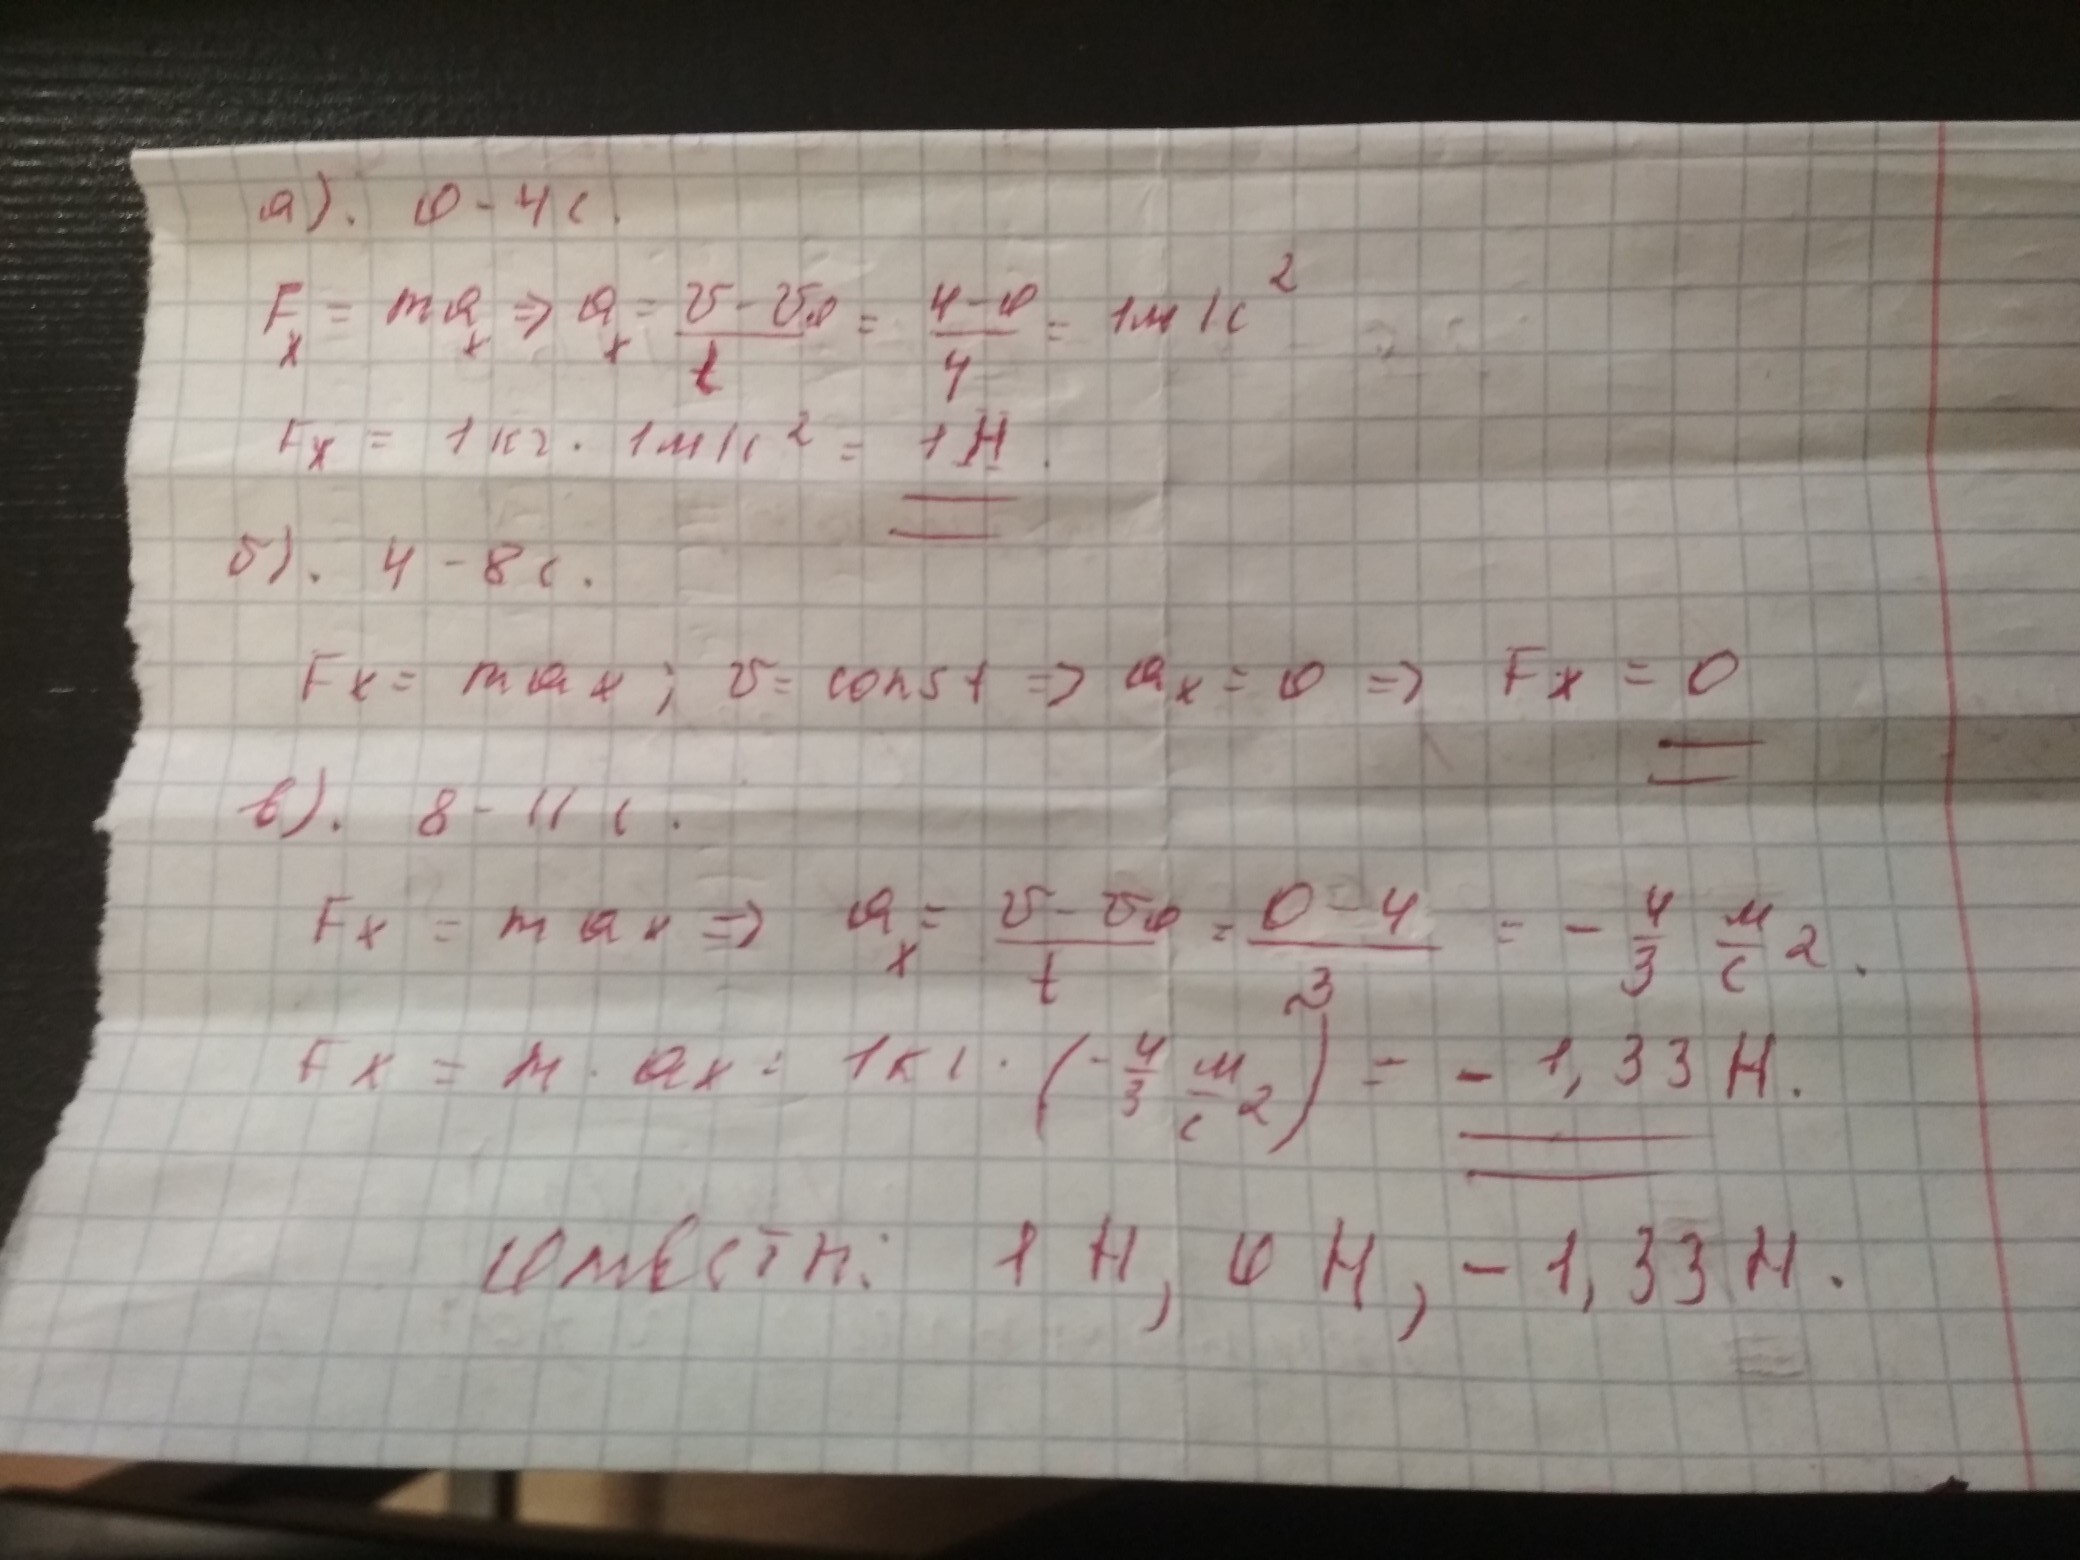 а). 0 - 4 с.
Fx = max => ax = v - v0 / t = 4 - 0 / 4 = 1 м/с²
Fx = 1 кг · 1 м/с² = 1 Н.
б). 4 - 8 с.
Fx = max; v = const => ax = 0 => Fx = 0
в). 8 - 11 с.
Fx = max => ax = v - v0 / t = 0 - 4 / 3 = - 4/3 м/с².
Fx = m · ax = 1 кг · (- 4/3 м/с²) = - 1,33 Н.
Ответы: 1 Н, 0 Н, - 1,33 Н.